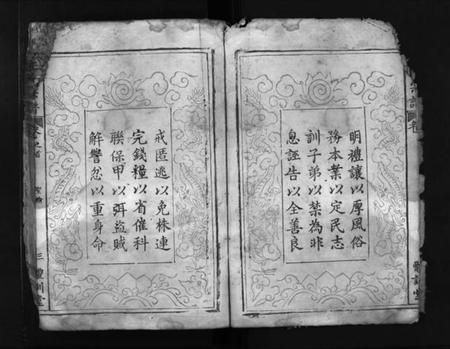 明禮讓以厚風俗
務本業以定民志
訓子弟以禁為非
息誣告以全善良
戒匿逃以免株連
完錢糧以省催科
聯保甲以弭盜賊
解讐忿以重身命